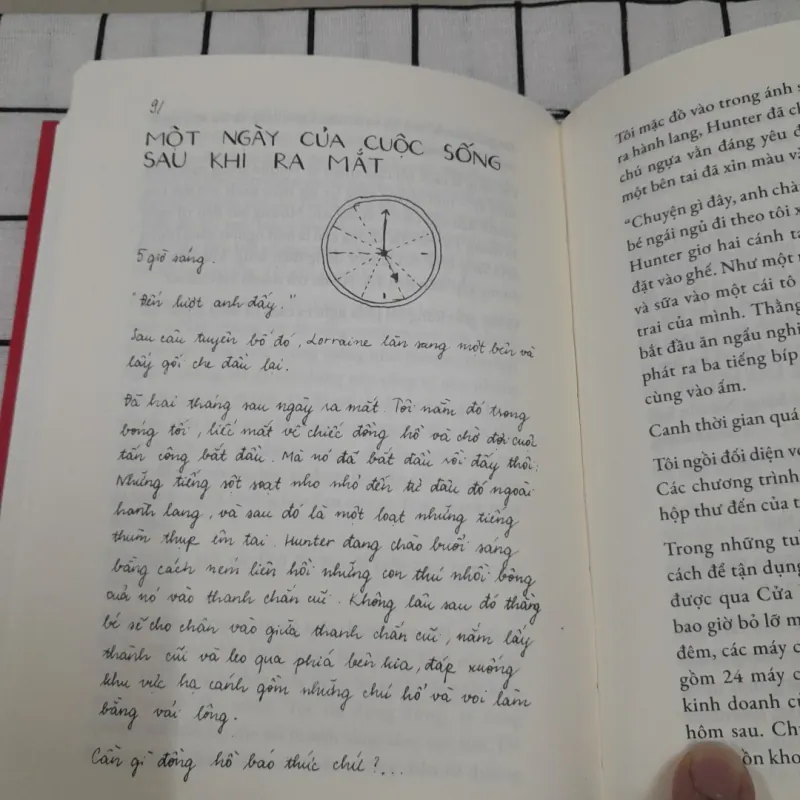 9/
MỘT NGÀY CỦA CUỘC SỐNG
SAU KHI RA MẮT
5 giờ sáng.
"Đến lượt anh đấy."
Sau câu tuyên bố đó, Lorraine lăn sang một bên và
lấy gối che đầu lại.
Đã hai tháng sau ngày ra mắt. Tôi nằm đó trong
bóng tối, liếc mắt về chiếc đồng hồ và chờ đợi cuộc
tấn công bắt đầu. Mà nó đã bắt đầu rồi đấy thôi:
Những tiếng sột soạt nho nhỏ đến từ đâu đó ngoài
hành lang, và sau đó là một loạt những tiếng
thùm thụp êm tai. Hunter đang chào buổi sáng
bằng cách ném liên hồi những con thú nhồi bông
của nó vào thanh chắn cũi. Không lâu sau đó thằng
bé sẽ cho chân vào giữa thanh chắn cũi, nắm lấy
thành cũi và leo qua phía bên kia, đáp xuống
khu vực hạ cánh gồm những chú hổ và voi làm
bằng vải lông.
Cần gì đồng hồ báo thức chứ?...
Tôi mặc đồ vào trong ánh s
ra hành lang, Hunter đã ch
chú ngựa vằn đáng yêu đ
một bên tai đã xỉn màu và
"Chuyện gì đây, anh chà
bé ngái ngủ đi theo tôi x
Hunter giơ hai cánh ta
đặt vào ghế. Như một
và sữa vào một cái tô
trai của mình. Thằng
bắt đầu ăn ngấu nghi
phát ra ba tiếng bíp
cùng vào ấm.
Canh thời gian quá
Tôi ngồi đối diện vớ
Các chương trình
hộp thư đến của t
Trong những tu
cách để tận dụng
được qua Cửa
bao giờ bỏ lỡ m
đêm, các máy c
gồm 24 máy c
kinh doanh củ
hôm sau. Ch
ồn kho